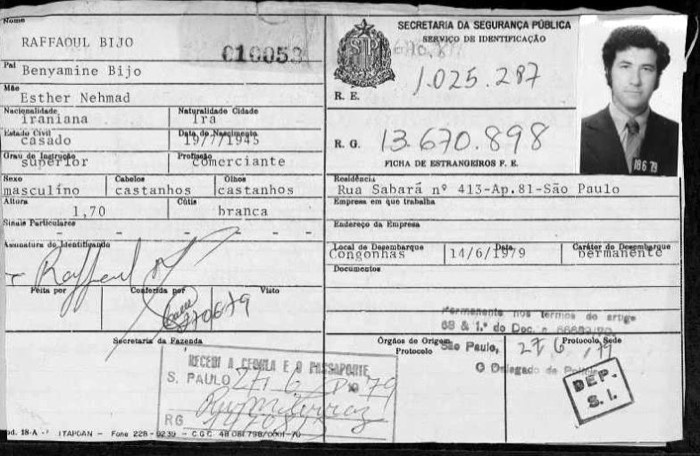 Nome
RAFFAOUL BIJO
010053
Pai
Benyamine Bijo
Mãe
Esther Nehmad
Nacionalidade
iraniana
Naturalidade Cidade
Ira
Estado Civil
casado
Data do Nascimento
19/7/1945
Grau de Instrução
superior
Profissão
comerciante
Sexo
masculino
Cabelos
castanhos
Olhos
castanhos
Altura
1,70
Cútis
branca
Sinais Particulares
Assinatura do Identificando
Raffaoul
Feita por
Conferida por
Visto
270679
Secretaria da Fazenda
RECEBI A CEDULA E O PASSAPORTE
S. PAULO 27 6 DE 1979
RG
18-A - ITAPOAN - Fone 228-9239 - C.G.C. 48 081 798/0001-70
SECRETARIA DA SEGURANÇA PÚBLICA
SERVIÇO DE IDENTIFICAÇÃO
R. E.
1.025.287
R. G.
13.670.898
FICHA DE ESTRANGEIROS F. E.
18 6 79
Residência
Rua Sabará nº 413-Ap.81-São Paulo
Empresa em que trabalha
Endereço da Empresa
Local de Desembarque
Congonhas
Data
14/6/1979
Caráter do Desembarque
permanente
Documentos
Permanente nos termos do artigo
Órgãos de Origem
Protocolo
Protocolo, Sede
São Paulo, 27 6 79
O Delegado de
DEP-
S.I.